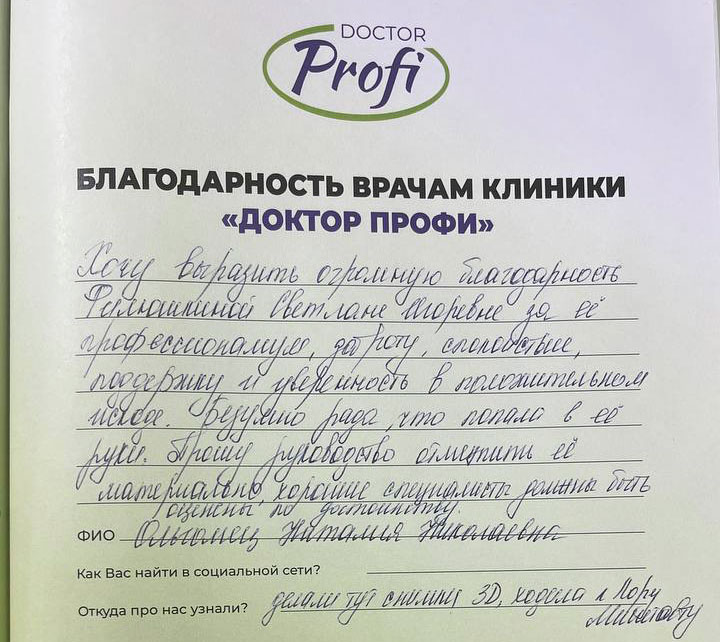 DOCTOR
Profi
БЛАГОДАРНОСТЬ ВРАЧАМ КЛИНИКИ
«ДОКТОР ПРОФИ»
Хочу выразить огромную благодарность
Филюшкиной Светлане Игоревне за её
профессионализм, заботу, спокойствие,
поддержку и уверенность в положительном
исходе. Безумно рада, что попала в её
руки. Прошу руководство отметить её
материально, хорошие специалисты должны быть
оценены по достоинству.
ФИО Наталия Николаевна
Как Вас найти в социальной сети?
Откуда про нас узнали? делали тут снимки 3D, ходила к Лору